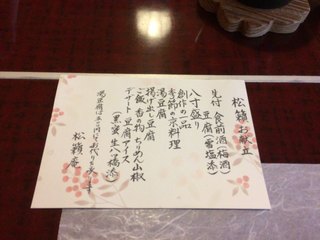 松籟お献立
先付 食前酒(梅酒)
豆腐(雪塩添)
八寸盛り
創作の一品
季節の京料理
湯豆腐
揚げ出し豆腐
ご飯 香の物 ちりめん山椒
デザート 豆腐アイス
(黒蜜 生八ツ橋添)
湯豆腐は
松籟庵